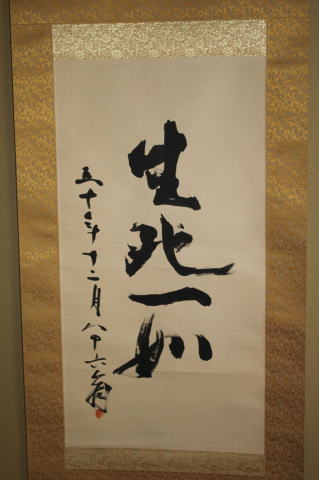 生死一如
五十年十二月八十六翁